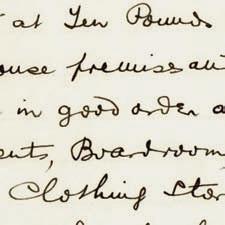 at Ten Pounds
ouse premises an
in good order a
ents, Boardroom
Clothing Stor